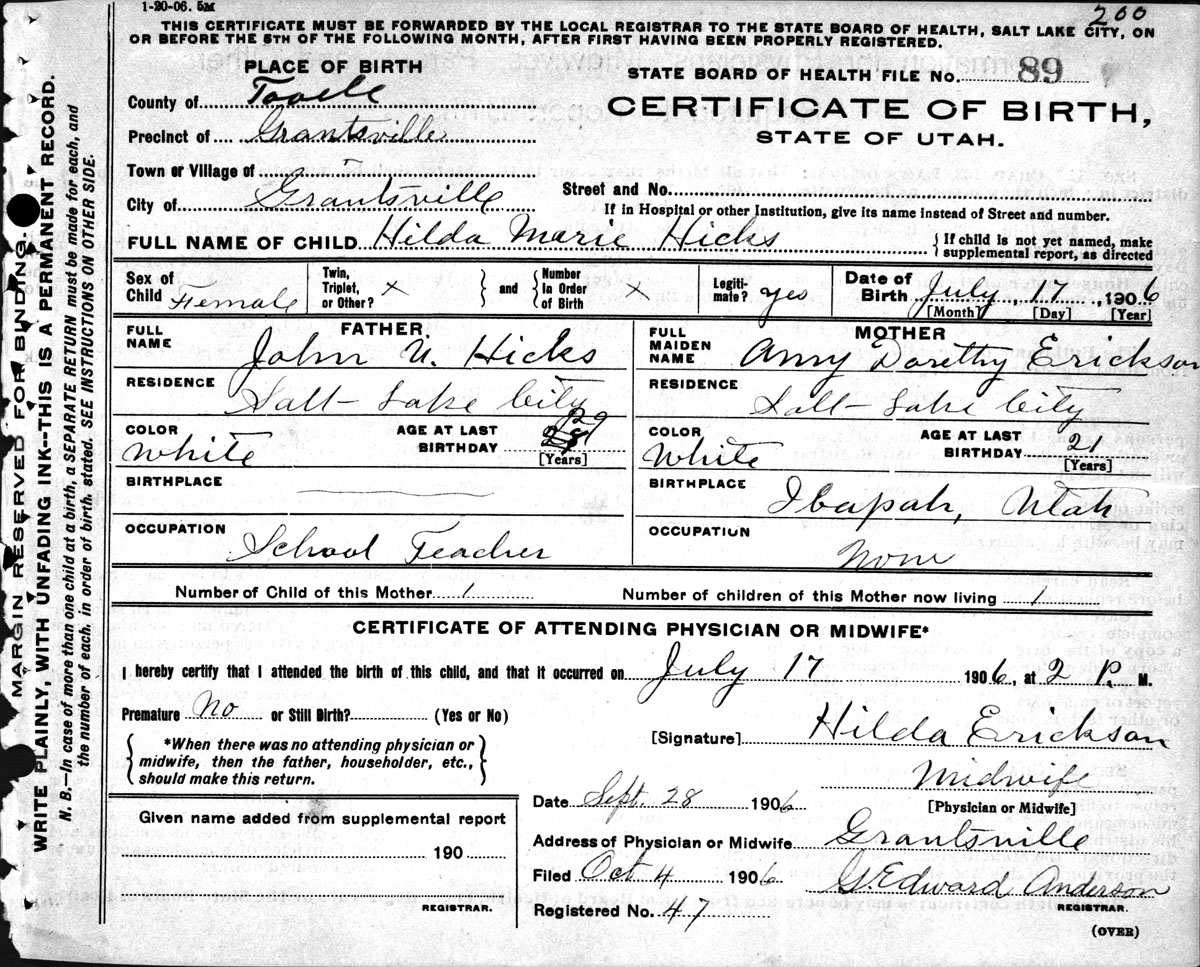 1-20-06. 5M
200
THIS CERTIFICATE MUST BE FORWARDED BY THE LOCAL REGISTRAR TO THE STATE BOARD OF HEALTH, SALT LAKE CITY, ON
OR BEFORE THE 5TH OF THE FOLLOWING MONTH, AFTER FIRST HAVING BEEN PROPERLY REGISTERED.
PLACE OF BIRTH
County of Tooele
Precinct of Grantsville
Town or Village of
City of Grantsville
STATE BOARD OF HEALTH FILE No. 89
CERTIFICATE OF BIRTH,
STATE OF UTAH.
Street and No.
If in Hospital or other Institution, give its name instead of Street and number.
FULL NAME OF CHILD Hilda Marie Hicks
{ If child is not yet named, make
supplemental report, as directed
Sex of Child Female
Twin, Triplet, or Other? x } and { Number In Order of Birth x
Legitimate? yes
Date of Birth July, 17, 1906
[Month] [Day] [Year]
FATHER.
FULL NAME John U. Hicks
RESIDENCE Salt-Lake City
COLOR White
AGE AT LAST BIRTHDAY 29
[Years]
BIRTHPLACE
OCCUPATION School Teacher
MOTHER
FULL MAIDEN NAME Amy Dorethy Erickson
RESIDENCE Salt-Lake City
COLOR White
AGE AT LAST BIRTHDAY 21
[Years]
BIRTHPLACE Ibapah, Utah
OCCUPATION None
Number of Child of this Mother 1
Number of children of this Mother now living 1
CERTIFICATE OF ATTENDING PHYSICIAN OR MIDWIFE*
I hereby certify that I attended the birth of this child, and that it occurred on July 17 1906, at 2 P. M.
Premature No or Still Birth? (Yes or No)
{ *When there was no attending physician or
midwife, then the father, householder, etc.,
should make this return. }
[Signature] Hilda Erickson
Midwife
[Physician or Midwife]
Date Sept. 28 1906
Address of Physician or Midwife Grantsville
Filed Oct 4 1906 G. Edward Anderson
REGISTRAR.
Registered No. 47
(OVER)
Given name added from supplemental report
190
REGISTRAR.
MARGIN RESERVED FOR BINDING.
WRITE PLAINLY, WITH UNFADING INK--THIS IS A PERMANENT RECORD.
N. B.—In case of more than one child at a birth, a SEPARATE RETURN must be made for each, and
the number of each, in order of birth, stated. SEE INSTRUCTIONS ON OTHER SIDE.